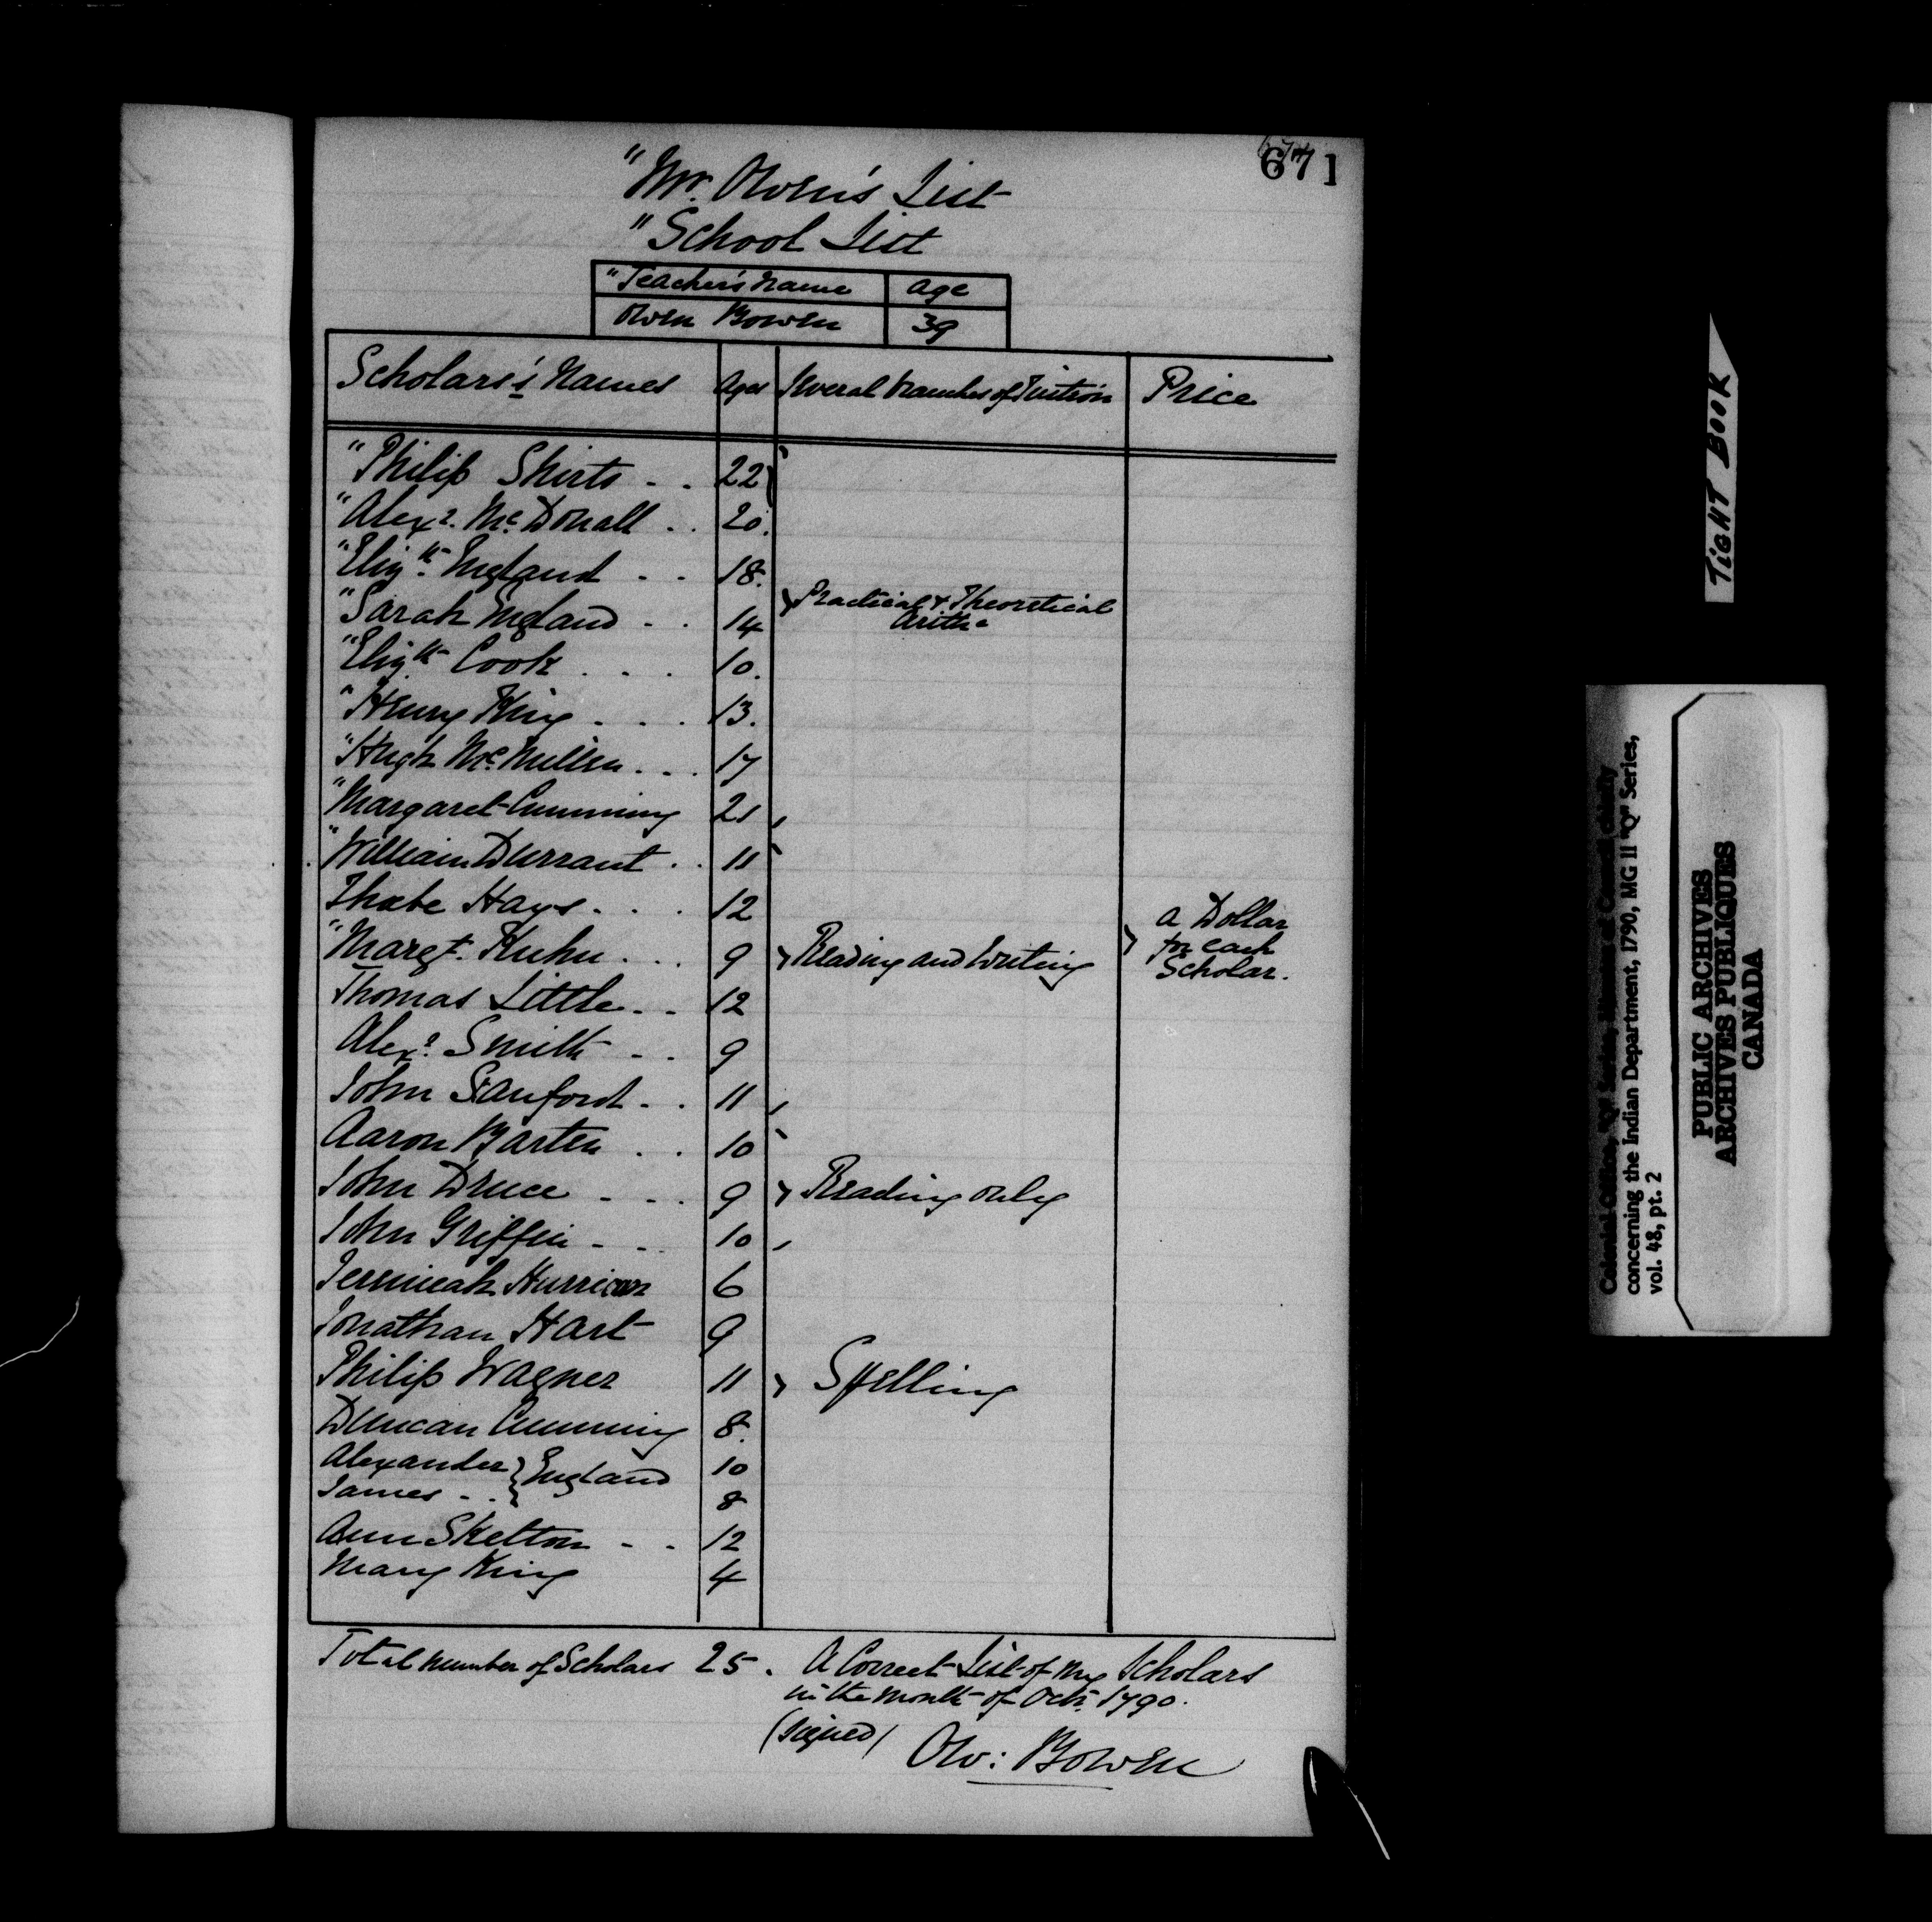 671
"Mr. Owen's List
"School List
"Teacher's Name Age
Owen Bowen 39
Scholars's Names Ages Several branches of Tuition Price
"Philip Shirts - - 22
"Alexr. McDonall - . 20.
"Elizth. England - - 18.
"Sarah England - . 14
Practical & Theoretical
Arithc
"Elizth Cook . . . 10.
"Henry King . . . 13.
"Hugh McMillen . . . 17
"Margaret Cumming 21
"William Durrant . . 11
Thabe Hays . . . 12
"Margt. Kuhn . . . 9 Reading and Writing
a Dollar
for each
Scholar.
Thomas Little . - 12
Alexr. Smith - - 9
John Stanford - . 11
Aaron Barten . . 10
John Druce - . . 9 Reading only
John Griffin - . . 10
Jerimeah 6
Jonathan Hart 9
Philip Wagner 11 Spelling
Duncan Cumming 8.
Alexander } England 10
James - . } 8
Ann Skelton - - 12
Mary King 4
Total number of Scholars 25. A Correct List of my Scholars
in the month of Octr. 1790.
(signed) Ow: Bowen
TIGHT BOOK
concerning the Indian Department, 1790, MG 11 "Q" Series,
vol. 48, pt. 2
PUBLIC ARCHIVES
ARCHIVES PUBLIQUES
CANADA